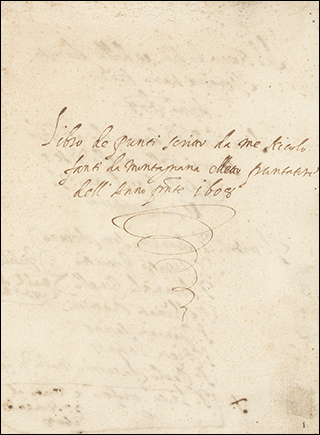 Libro de punti scritto da me Nicolo
fonti da Montagnana eletto puntatore
dell' Anno pnte 1608
1